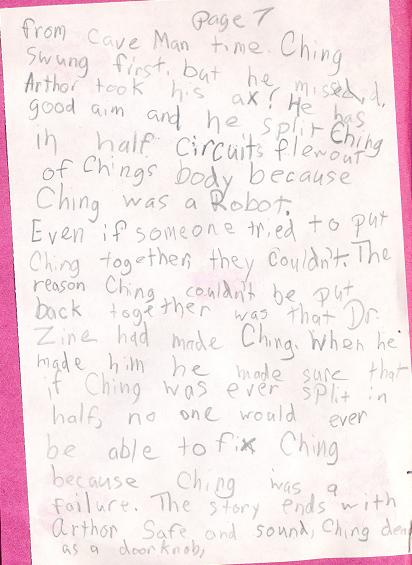 Page 7
from Cave Man time. Ching
swung first, but he missed,
Arthor took his ax! He has
good aim and he split Ching
in half Circuits flew out
of Chings body because
Ching was a Robot.
Even if someone tried to put
Ching together they couldn't. The
reason Ching couldn't be put
back together was that Dr.
Zine had made Ching. When he
made him he made sure that
if Ching was ever split in
half, no one would ever
be able to fix Ching
because Ching was a
failure. The story ends with
Arthor Safe and sound, Ching dead
as a doorknob,